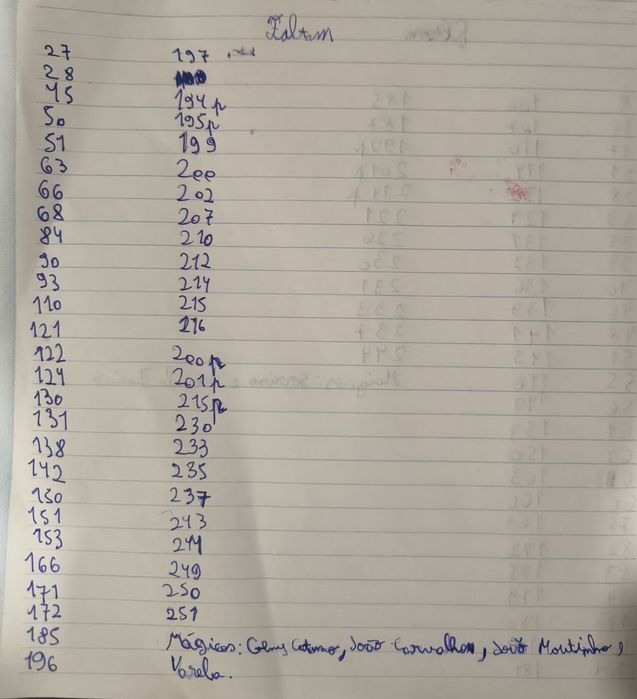 Faltam
27 197
28
45 194p
50 195p
51 199
63 200
66 202
68 207
84 210
90 212
93 214
110 215
121 216
122 200p
124 201p
130 215p
131 230
138 233
142 235
150 237
151 243
153 244
166 249
171 250
172 251
185 Mágicos: Geny Catamo, João Carvalho, João Moutinho,
196 Varela.